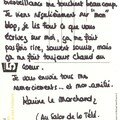 merveilleux me touchent beaucoup.
Je viens régulièrement sur mon
blog, je lis tout ce que vous
écrivez, ça me fait
parfois rire, souvent sourire, mais
ça me fait toujours chaud au
coeur.
Je vous envoie tous mes
remerciements... et mon amitié.
Karine le Marchand,
(Au Salon de la Télé)